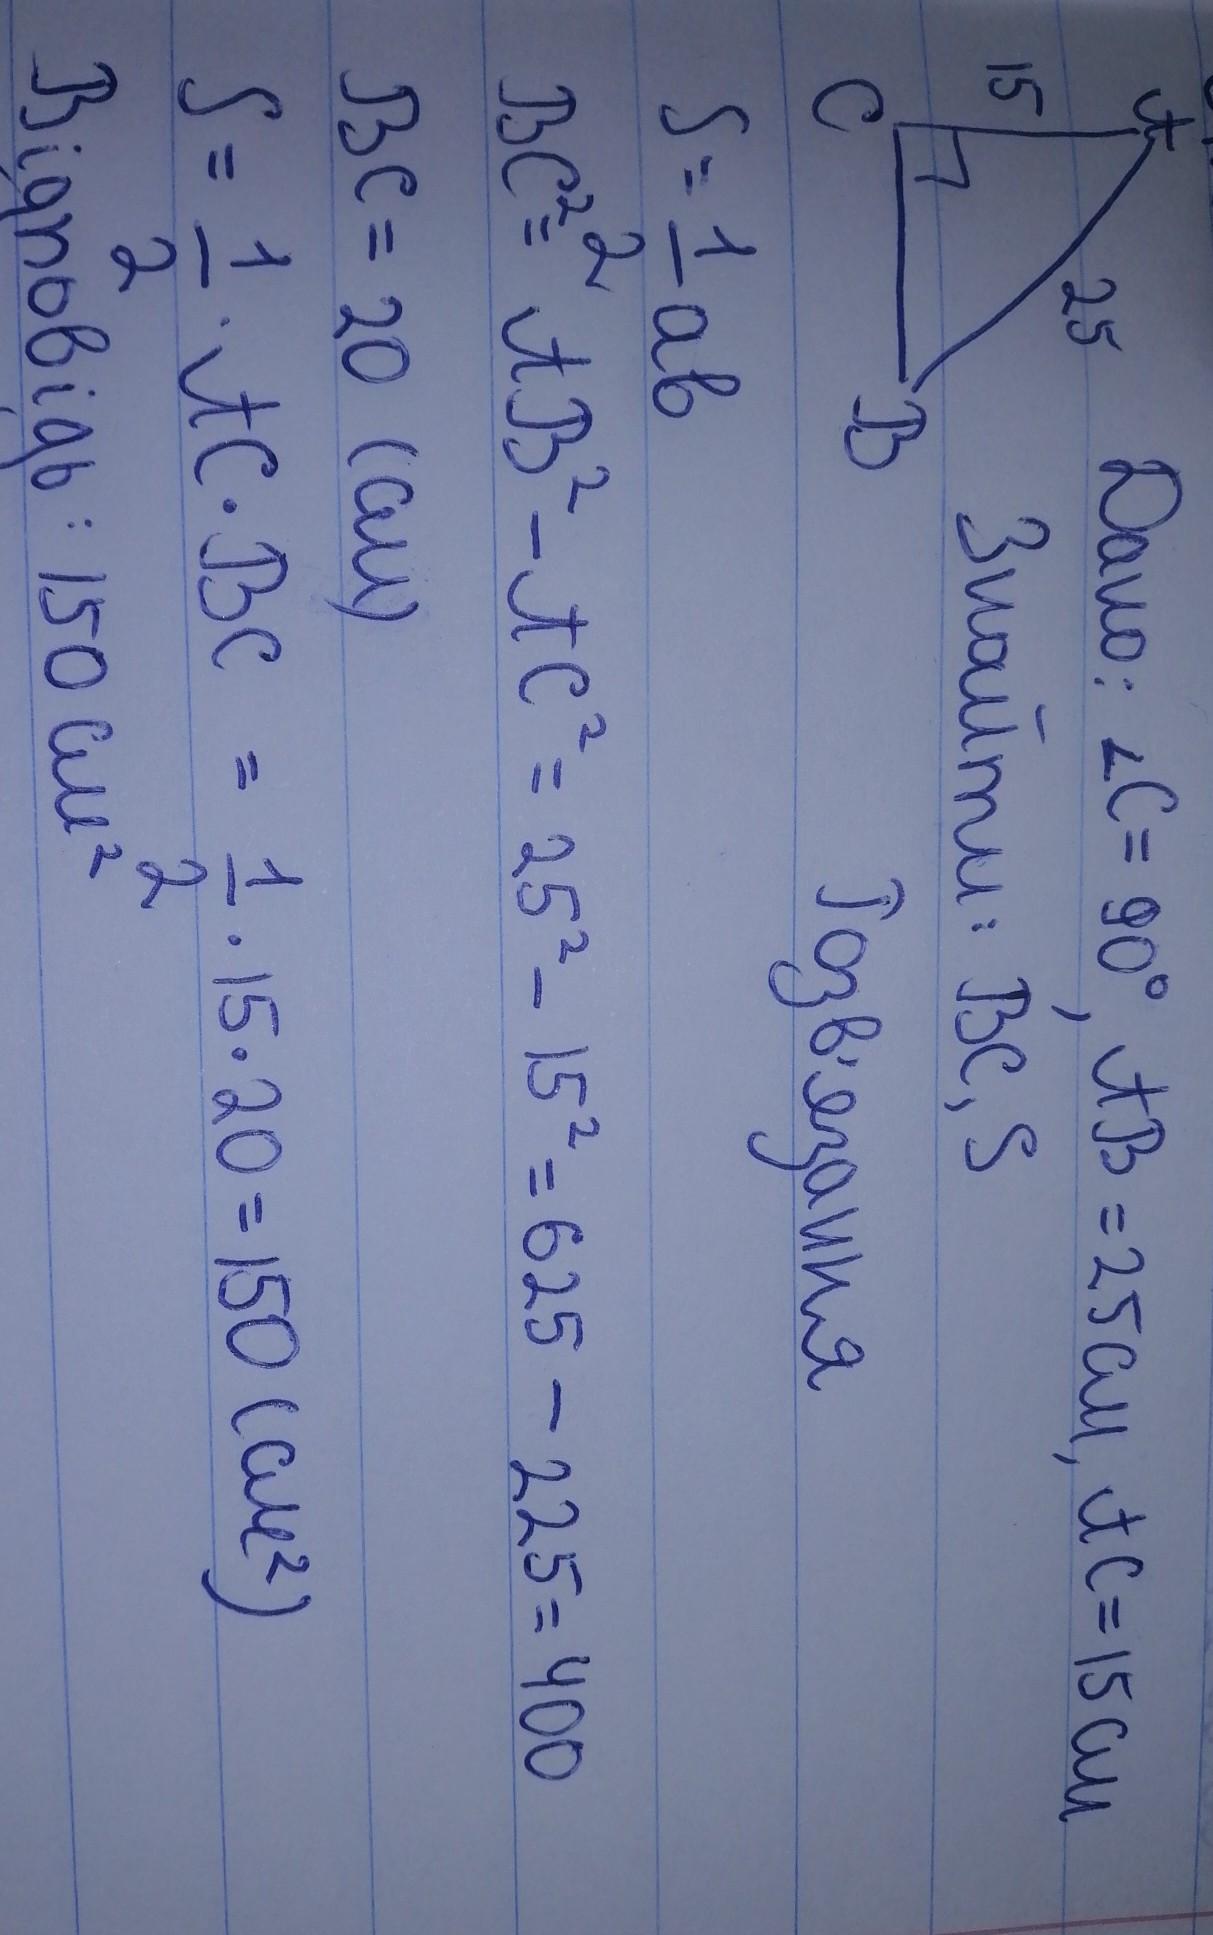 A
15
25
C
B
Дано: ∠C = 90°, AB = 25 см, AC = 15 см
Знайти: BC, S
Розв'язання
S = 1/2 ab
BC² = AB² - AC² = 25² - 15² = 625 - 225 = 400
BC = 20 (см)
S = 1/2 · AC · BC = 1/2 · 15 · 20 = 150 (см²)
Відповідь: 150 см²